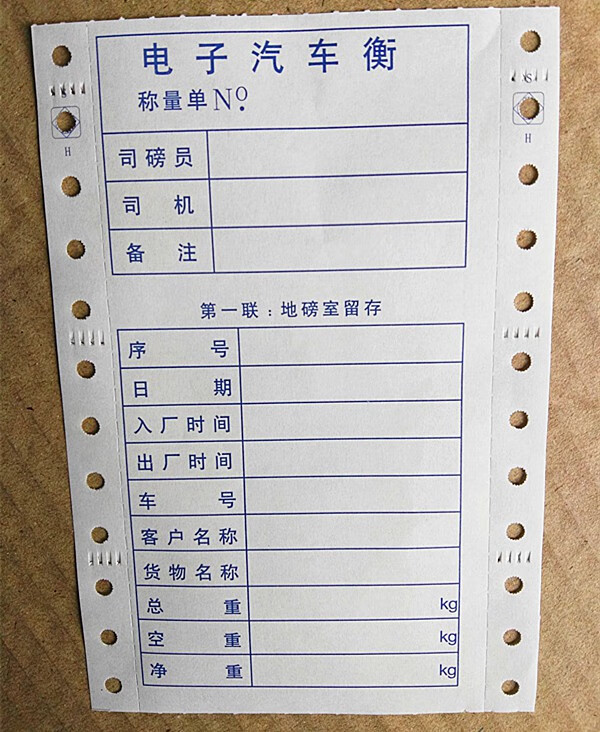 电子汽车衡
称量单 No.
司磅员
司机
备注
第一联：地磅室留存
序号
日期
入厂时间
出厂时间
车号
客户名称
货物名称
总重 kg
空重 kg
净重 kg
H
H